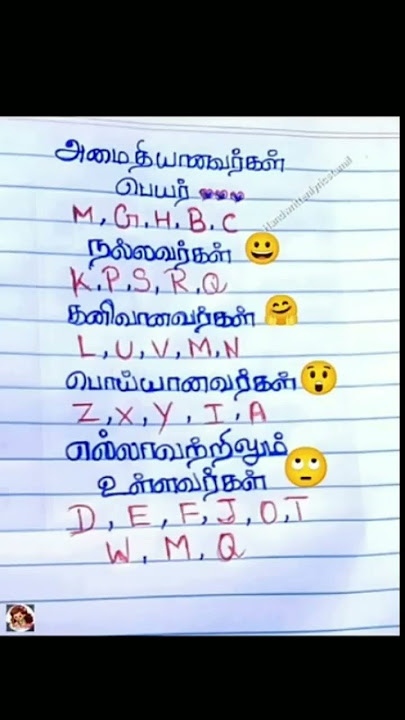 அமைதியானவர்கள்
பெயர்
M, G, H, B, C
நல்லவர்கள்
K, P, S, R, Q
கனிவானவர்கள்
L, U, V, M, N
பொய்யானவர்கள்
Z, X, Y, I, A
எல்லாவற்றிலும்
உள்ளவர்கள்
D, E, F, J, O, T
W, M, Q